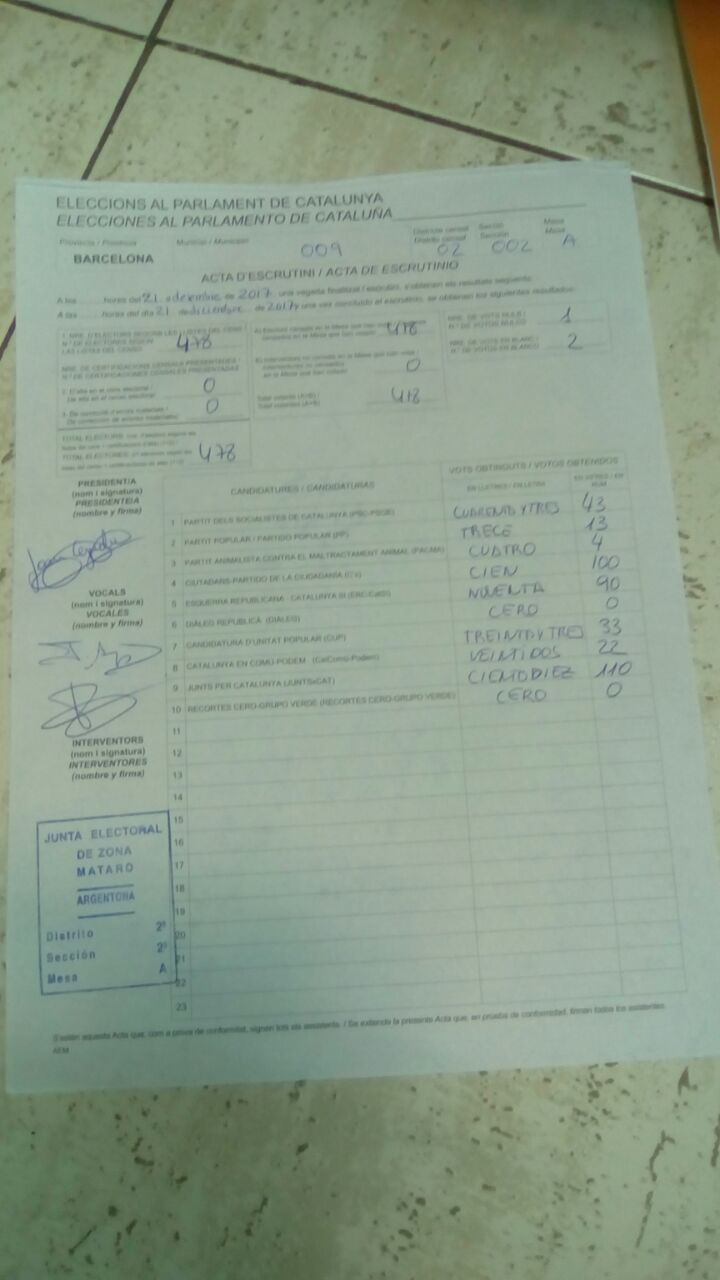 ELECCIONS AL PARLAMENT DE CATALUNYA
ELECCIONES AL PARLAMENTO DE CATALUÑA
Província / Provincia Municipi / Municipio Districte censal Secció Mesa
Distrito censal Sección Mesa
BARCELONA 009 02 002 A
ACTA D'ESCRUTINI / ACTA DE ESCRUTINIO
A les hores del 21 de desembre de 2017, una vegada finalitzat l'escrutini, s'obtenen els resultats següents:
A las horas del día 21 de diciembre de 2017 y una vez concluido el escrutinio, se obtienen los siguientes resultados:
1. NRE. D'ELECTORS SEGONS LES LLISTES DEL CENS /
N.º DE ELECTORES SEGÚN
LAS LISTAS DEL CENSO
478
NRE. DE CERTIFICACIONS CENSALS PRESENTADES /
N.º DE CERTIFICACIONES CENSALES PRESENTADAS
0
0
TOTAL ELECTORS
TOTAL ELECTORES
478
0
Total votants (A+B) /
Total votantes (A+B)
418
NRE. DE VOTS NULS /
N.º DE VOTOS NULOS
1
NRE. DE VOTS EN BLANC /
N.º DE VOTOS EN BLANCO
2
PRESIDENT/A
(nom i signatura)
PRESIDENTE/A
(nombre y firma)
VOCALS
(nom i signatura)
VOCALES
(nombre y firma)
INTERVENTORS
(nom i signatura)
INTERVENTORES
(nombre y firma)
CANDIDATURES / CANDIDATURAS VOTS OBTINGUTS / VOTOS OBTENIDOS
EN LLETRES / EN LETRA EN XIFRES / EN NÚM.
1 PARTIT DELS SOCIALISTES DE CATALUNYA (PSC-PSOE) CUARENTA Y TRES 43
2 PARTIT POPULAR / PARTIDO POPULAR (PP) TRECE 13
3 PARTIT ANIMALISTA CONTRA EL MALTRACTAMENT ANIMAL (PACMA) CUATRO 4
4 CIUTADANS-PARTIDO DE LA CIUDADANÍA (C's) CIEN 100
5 ESQUERRA REPUBLICANA - CATALUNYA SÍ (ERC-CatSí) NOVENTA 90
6 DIÀLEG REPÚBLICA (DIÀLEG) CERO 0
7 CANDIDATURA D'UNITAT POPULAR (CUP) TREINTA Y TRES 33
8 CATALUNYA EN COMÚ-PODEM (CatComú-Podem) VEINTIDOS 22
9 JUNTS PER CATALUNYA (JUNTSxCAT) CIENTO DIEZ 110
10 RECORTES CERO-GRUPO VERDE (RECORTES CERO-GRUPO VERDE) CERO 0
11
12
13
14
15
16
17
18
19
20
21
22
23
JUNTA ELECTORAL
DE ZONA
MATARO
ARGENTONA
Distrito 2º
Sección 2ª
Mesa A
S'estén aquesta Acta que, com a prova de conformitat, signen tots els assistents. / Se extiende la presente Acta que, en prueba de conformidad, firman todos los asistentes.